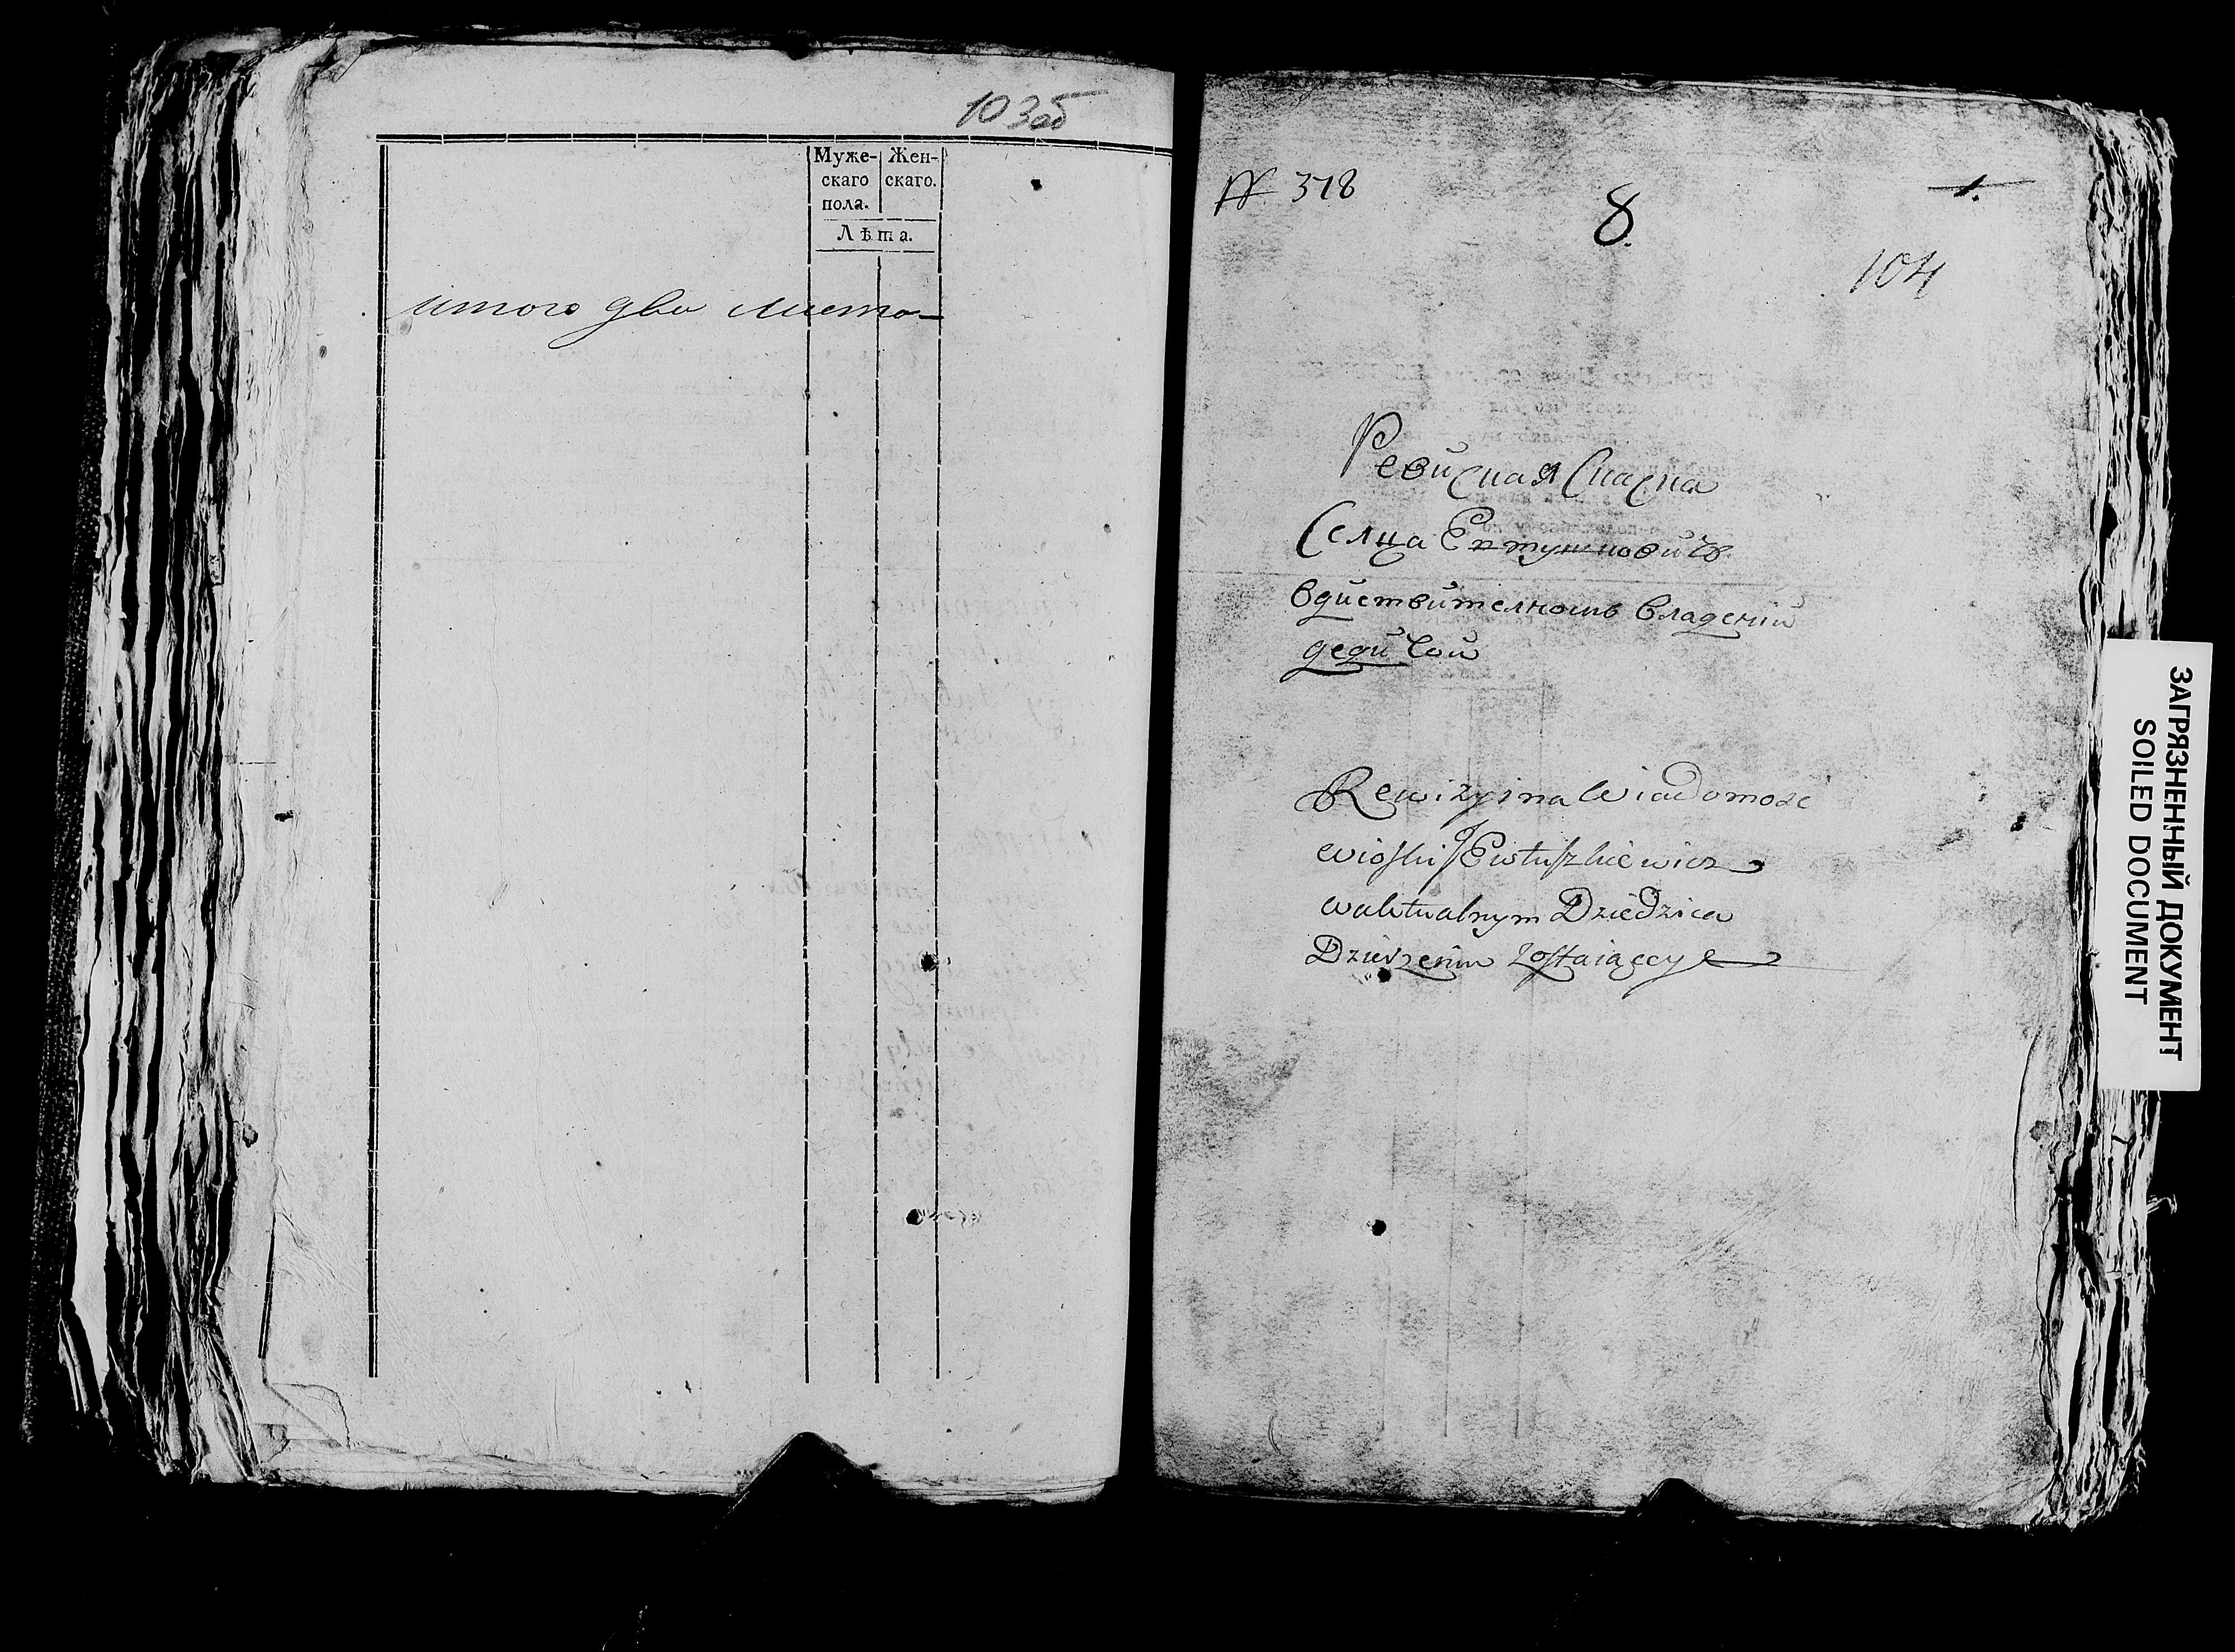 103об
Муже- Жен-
скаго скаго.
пола.
Лѣта.
итого два листа
№ 378
8.
1.
104
Ревиcная Скаcка
Селца Евтушковичъ
вдиствителномъ владении
дедичои
Rewizyina Wiadomosc
wioski Ewtuszkiewicz
waktualnym Dziedzica
Dzierzeniu zostaiącey
ЗАГРЯЗНЕННЫЙ ДОКУМЕНТ
SOILED DOCUMENT